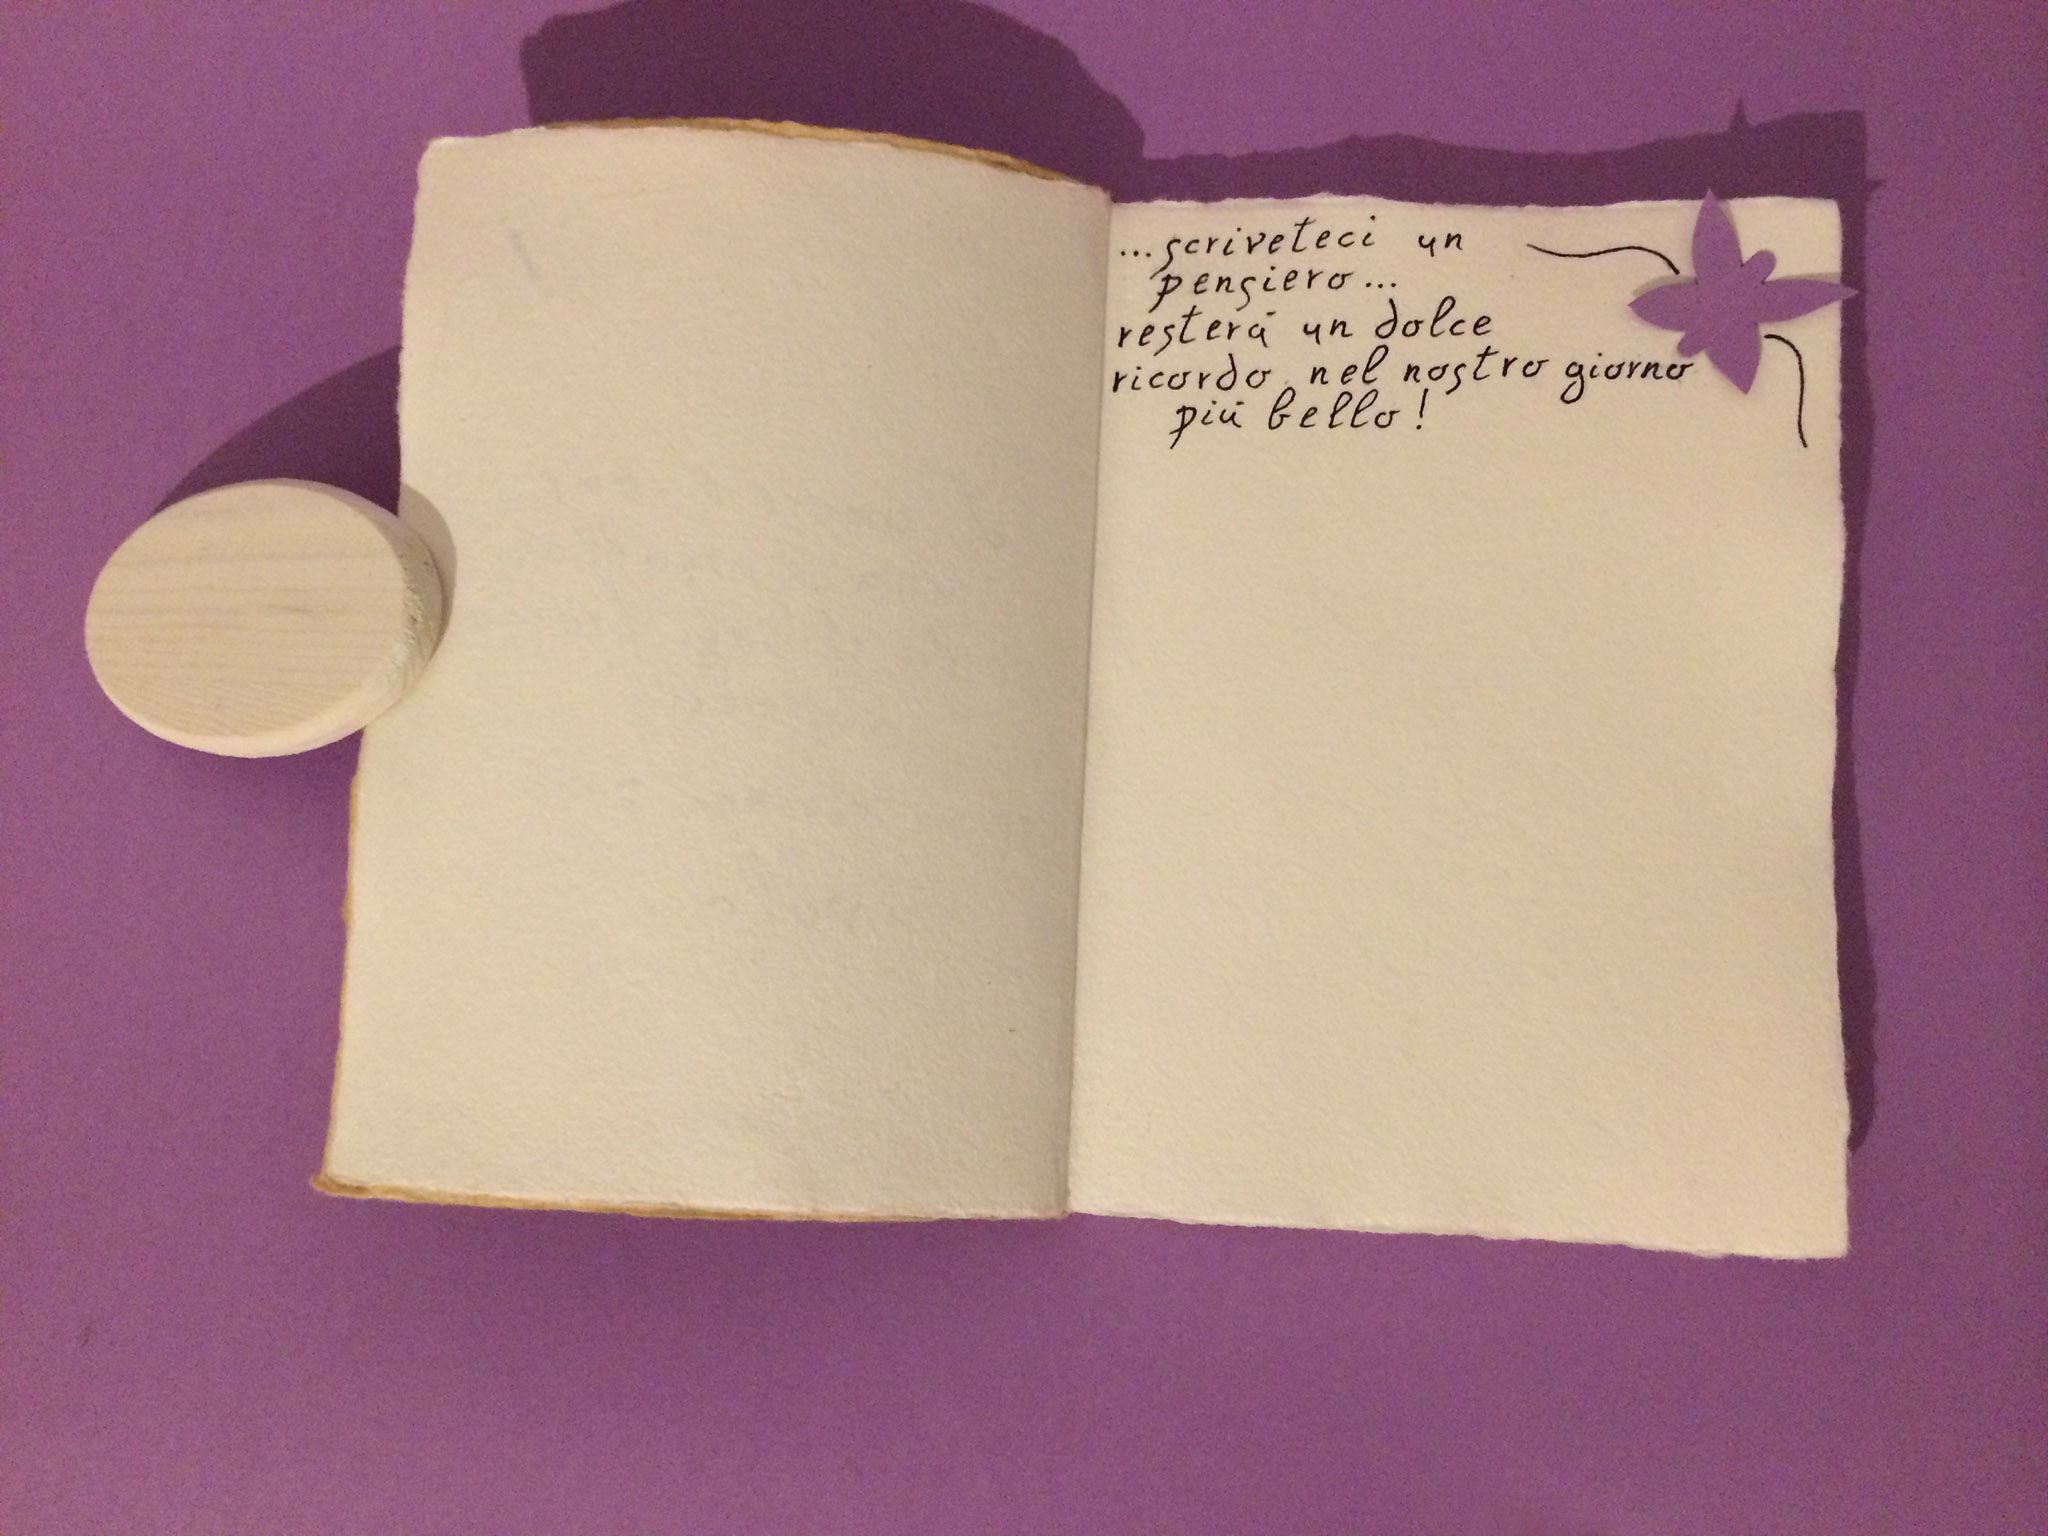 ...scriveteci un
pensiero...
resterà un dolce
ricordo nel nostro giorno
più bello!